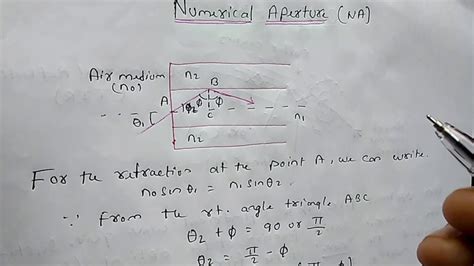 Numerical Aperture (NA)
n2
Air medium
(n0)
B
A
θ2 φ φ
θ1
C
n1
n2
For the refraction at the point A, we can write.
n0 sinθ1 = n1 sinθ2
∵ from the rt. angle triangle ABC
θ2 + φ = 90 or π/2
θ2 = π/2 - φ